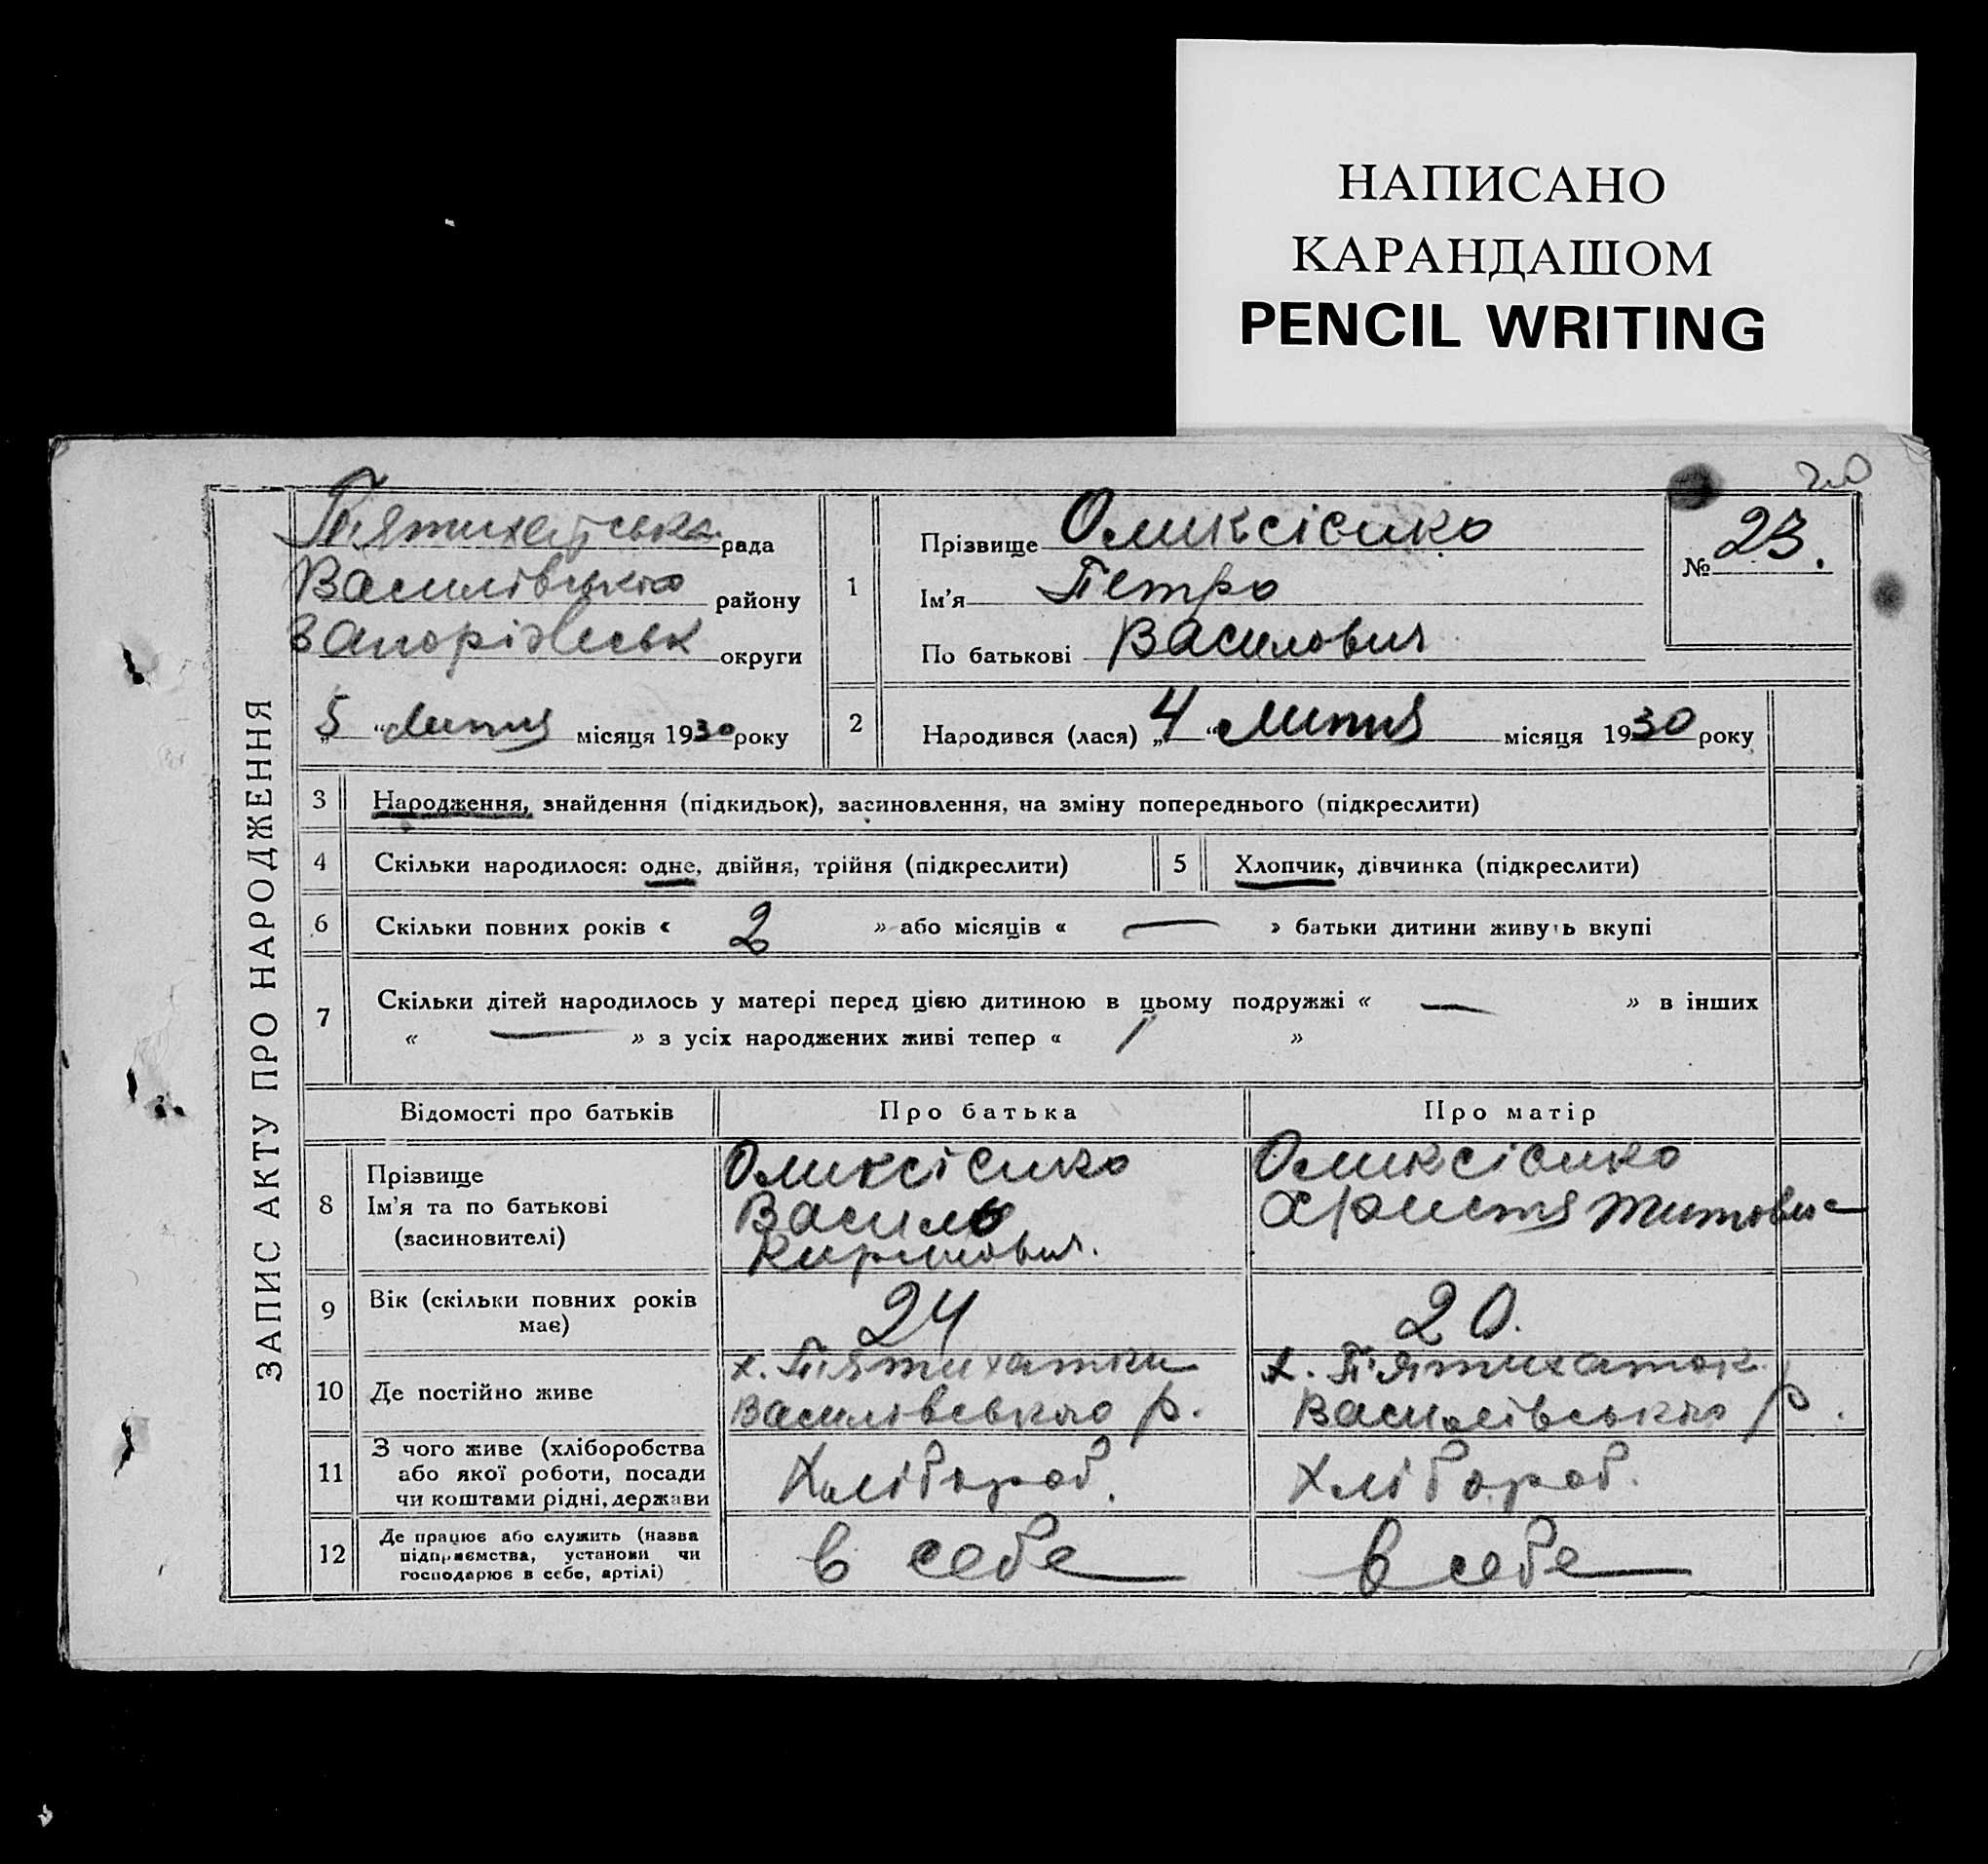 НАПИСАНО
КАРАНДАШОМ
PENCIL WRITING
20
ЗАПИС АКТУ ПРО НАРОДЖЕННЯ
П'ятихатська рада
Василівського району
Запоріжськ округи
„5“ Липня місяця 1930 року
1
Прізвище Оликсієнко
Ім'я Петро
По батькові Василович
№ 23.
2 Народився (лася) „4“ Липня місяця 1930 року
3 Народження, знайдення (підкидьок), засиновлення, на зміну попереднього (підкреслити)
4 Скільки народилося: одне, двійня, трійня (підкреслити) 5 Хлопчик, дівчинка (підкреслити)
6 Скільки повних років « 2 » або місяців « — » батьки дитини живуть вкупі
7 Скільки дітей народилось у матері перед цією дитиною в цьому подружжі « — » в інших
« — » з усіх народжених живі тепер « 1 »
Відомості про батьків Про батька Про матір
8 Прізвище
Ім'я та по батькові
(засиновителі)
Оликсієнко
Василь
Кирилович.
Оликсієнко
Христя Титовн
9 Вік (скільки повних років
має)
24 20.
10 Де постійно живе
х. П'ятихатки
Василівського р.
х. П'ятихаток
Василівського р.
11 З чого живе (хліборобства
або якої роботи, посади
чи коштами рідні, держави
Хлібороб. Хлібороб.
12 Де працює або служить (назва
підприємства, установи чи
господарює в себе, артілі)
в себе в себе